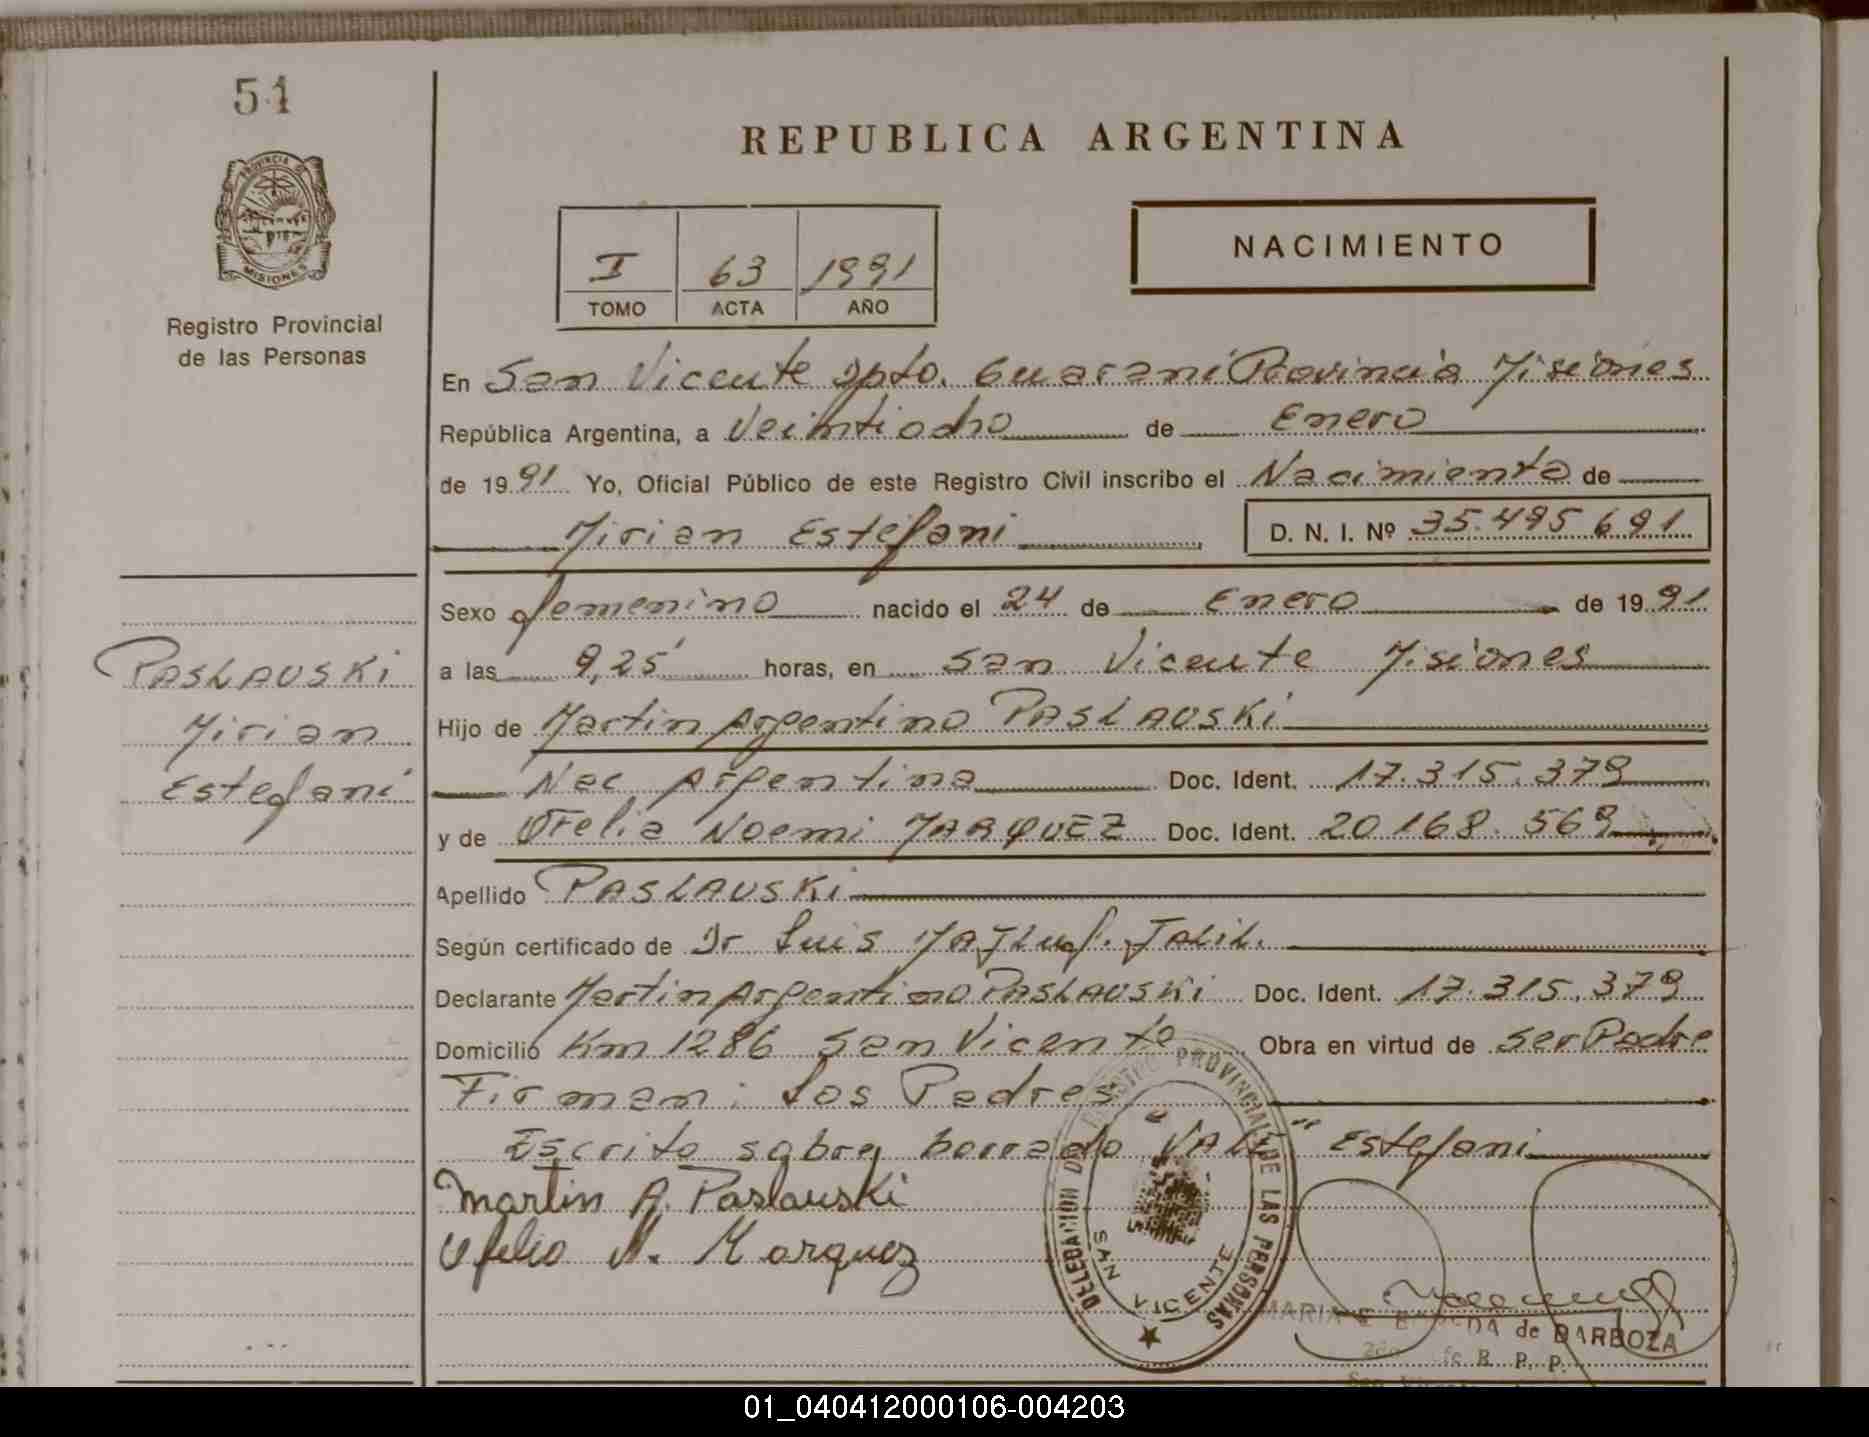 51
PROVINCIA DE
MISIONES
Registro Provincial
de las Personas
REPUBLICA ARGENTINA
I 63 1991
TOMO ACTA AÑO
NACIMIENTO
En San Vicente Dpto. Guaraní Provincia Misiones
República Argentina, a Veintiocho de Enero
de 1991 Yo, Oficial Público de este Registro Civil inscribo el Nacimiento de
Mirian Estefani D. N. I. Nº 35.495.691
Sexo femenino nacido el 24 de Enero de 1991
a las 9,25' horas, en San Vicente Misiones
PASLAUSKI
Mirian
Estefani
Hijo de Martin Argentino PASLAUSKI
Nac Argentina Doc. Ident. 17.315.379
y de Ofelia Noemi MARQUEZ Doc. Ident. 20.168.569
Apellido PASLAUSKI
Según certificado de Dr Luis Jalil.
Declarante Martin Argentino PASLAUSKI Doc. Ident. 17.315.379
Domicilio Km 1286 San Vicente Obra en virtud de ser Padre
Firman: Los Padres
Escrito sobre borrado VALE "Estefani
Martin A. Paslauski
Ofelia N. Marquez
DELEGACION DEL REGISTRO PROVINCIAL DE LAS PERSONAS
SAN VICENTE
MARIA E de BARBOZA
R. P. P.
01_040412000106-004203